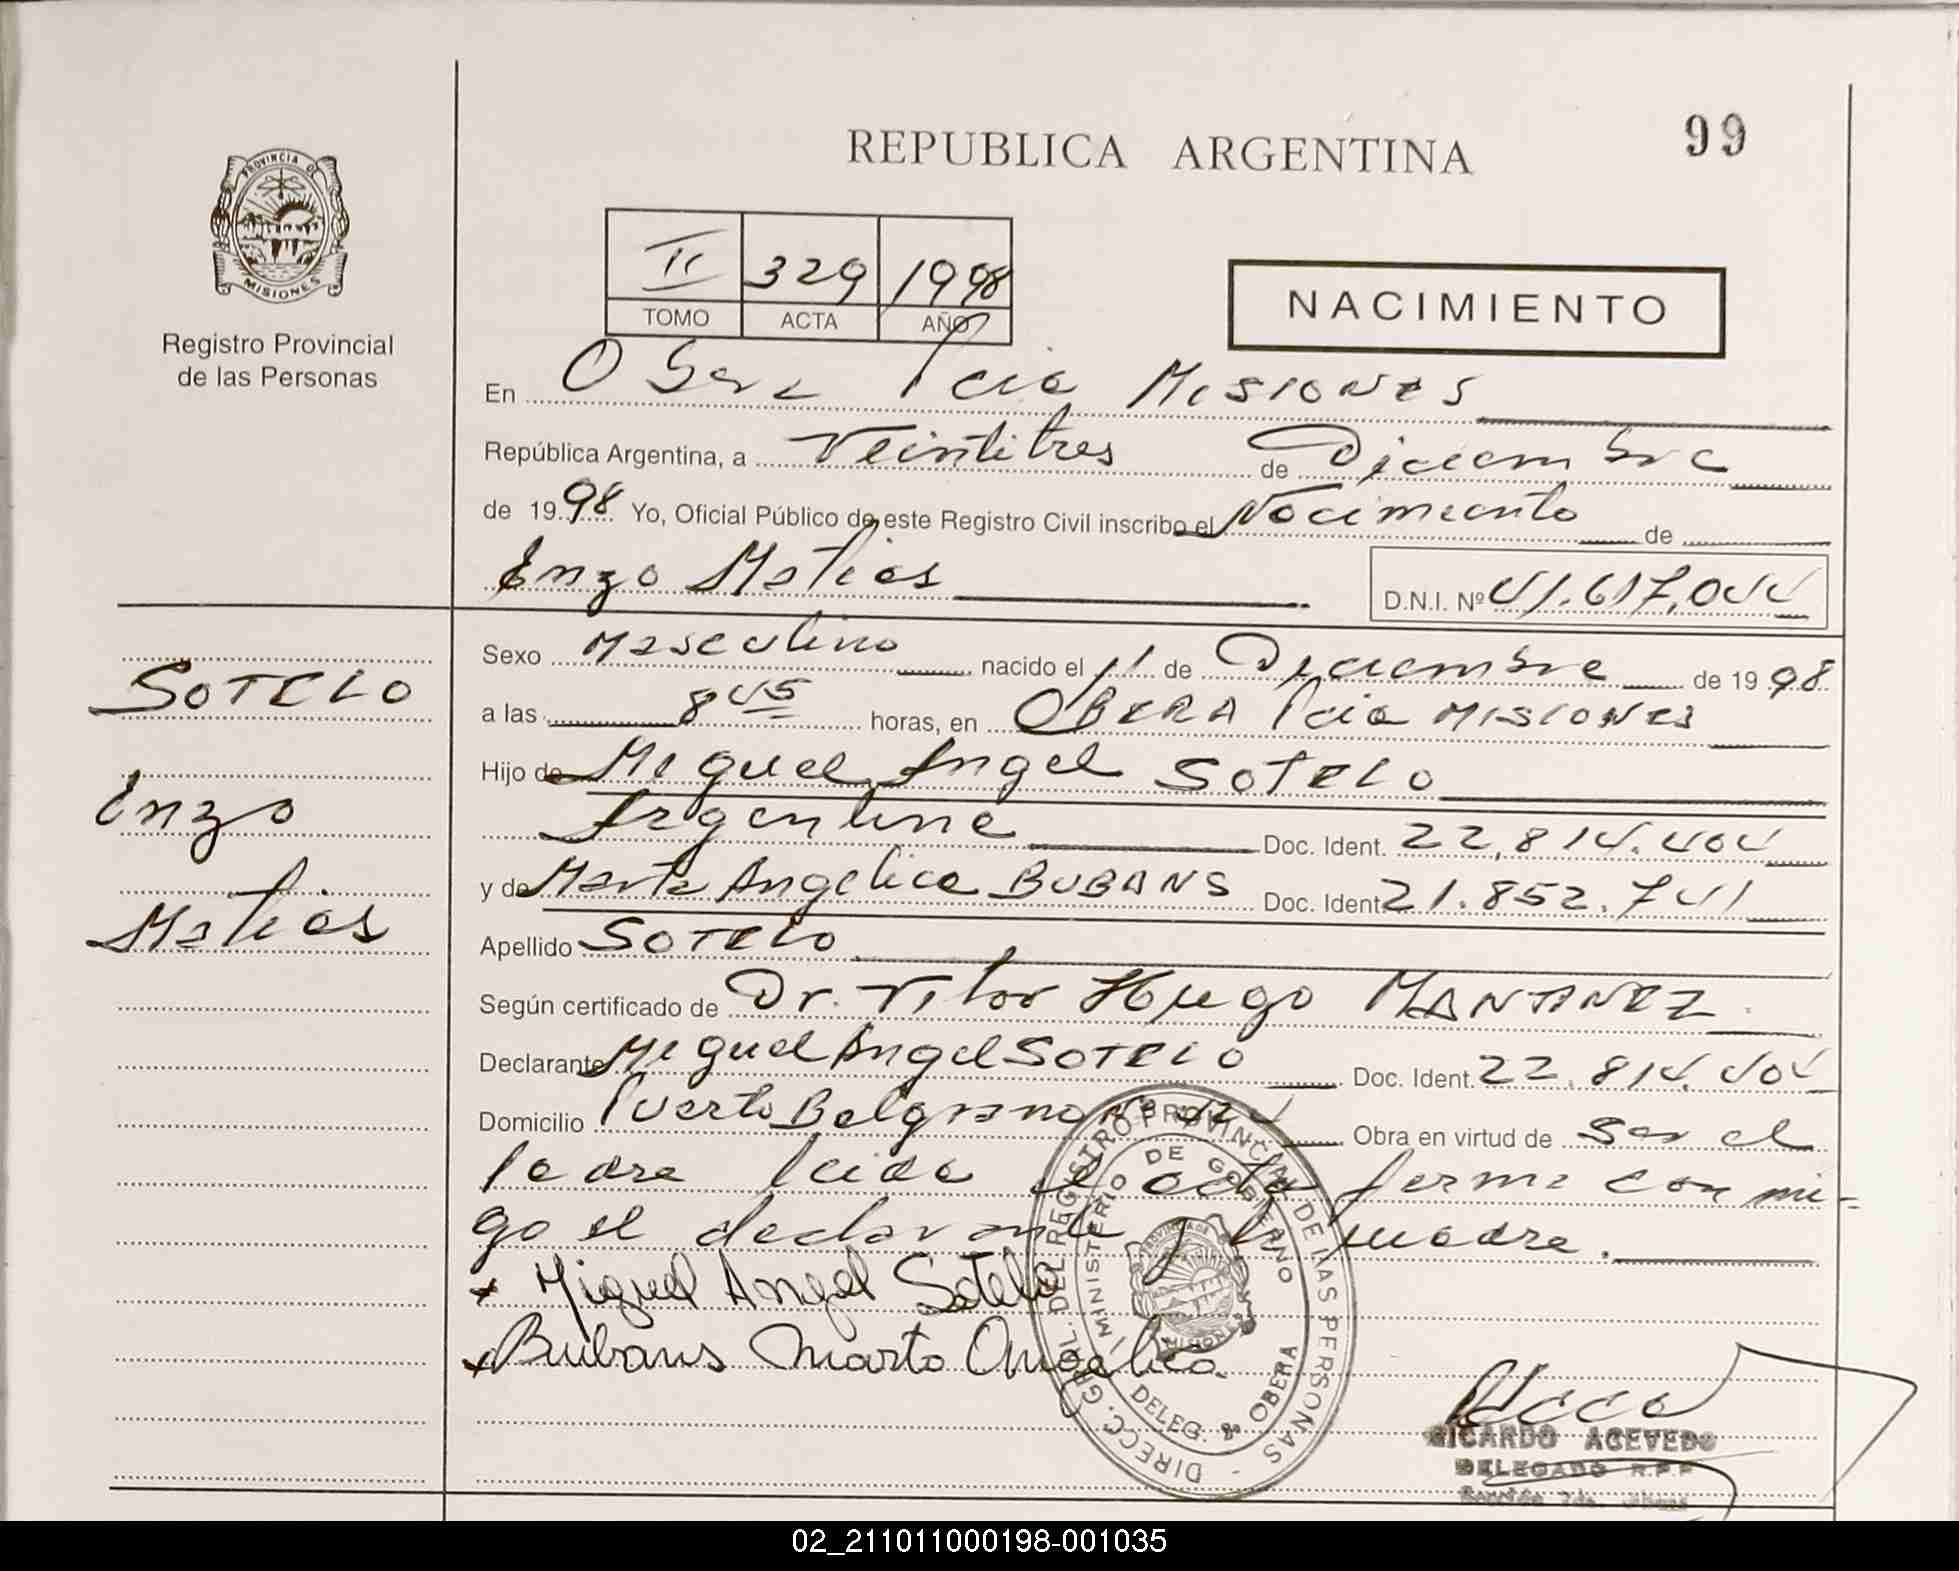 99
REPUBLICA ARGENTINA
PROVINCIA DE
MISIONES
Registro Provincial
de las Personas
II 329 1998
TOMO ACTA AÑO
NACIMIENTO
En Obera Pcia Misiones
República Argentina, a Veintitres de Diciembre
de 1998 Yo, Oficial Público de este Registro Civil inscribo el Nacimiento de
Enzo Matias
D.N.I. Nº 41.617.044
Sexo Masculino nacido el 11 de Diciembre de 1998
a las 8 45 horas, en OBERA Pcia MISIONES
Hijo de Miguel Angel SOTELO
Argentine Doc. Ident. 22.814.404
y de Marta Angelica BUBANS Doc. Ident 21.852.741
Apellido SOTELO
Según certificado de Dr. Vitor Hugo MANTINEZ
Declarante Miguel Angel SOTELO Doc. Ident. 22.814.404
Domicilio Puerto Belgrano Nº Obra en virtud de Ser el
Padre leida el acta firma conmi-
go el declarante y la madre.
x Miguel Angel Sotelo
x Bubans Marta Angelica
SOTELO
Enzo
Matias
DIRECC. GRAL. DEL REGISTRO PROVINCIAL DE LAS PERSONAS -
MINISTERIO DE GOBIERNO
DELEG. OBERA
PROVINCIA DE
MISIONES
RICARDO ACEVEDO
DELEGADO R.P.P
02_211011000198-001035